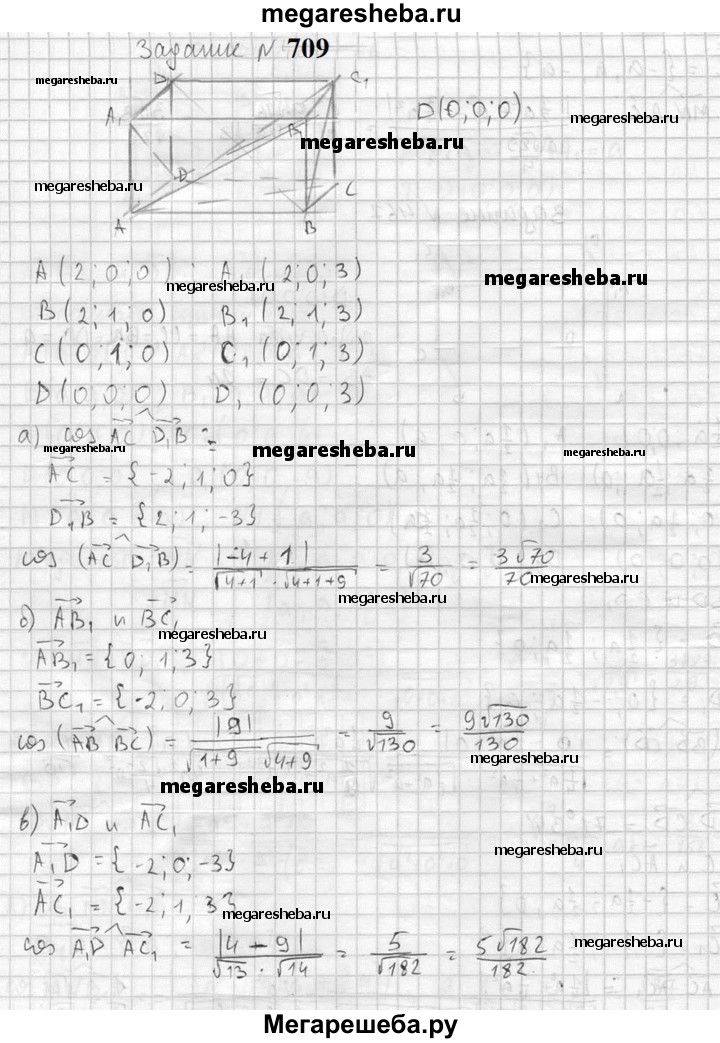 megaresheba.ru
Задание № 709
megaresheba.ru
D₁ C₁
A₁ B₁
D(0;0;0)
megaresheba.ru
megaresheba.ru
megaresheba.ru
D C
A B
A(2;0;0) A₁(2;0;3)
megaresheba.ru
megaresheba.ru
B(2;1;0) B₁(2;1;3)
C(0;1;0) C₁(0;1;3)
D(0;0;0) D₁(0;0;3)
а) cos AC D₁B =
megaresheba.ru
megaresheba.ru
AC = {-2;1;0}
D₁B = {2;1;-3}
cos (AC D₁B) = |-4+1| / √4+1 · √4+1+9 = 3/√70 = 3√70/70
megaresheba.ru
megaresheba.ru
б) AB₁ и BC₁
megaresheba.ru
AB₁ = {0; 1; 3}
BC₁ = {-2; 0; 3}
cos (AB BC) = |9| / √1+9 √4+9 = 9/√130 = 9√130/130
megaresheba.ru
megaresheba.ru
в) A₁D и AC₁
A₁D = {-2;0;-3}
megaresheba.ru
AC₁ = {-2;1;3}
megaresheba.ru
cos A₁D AC₁ = |4-9| / √13 · √14 = 5/√182 = 5√182/182
megaresheba.ru
megaresheba.ru
Мегарешеба.ру